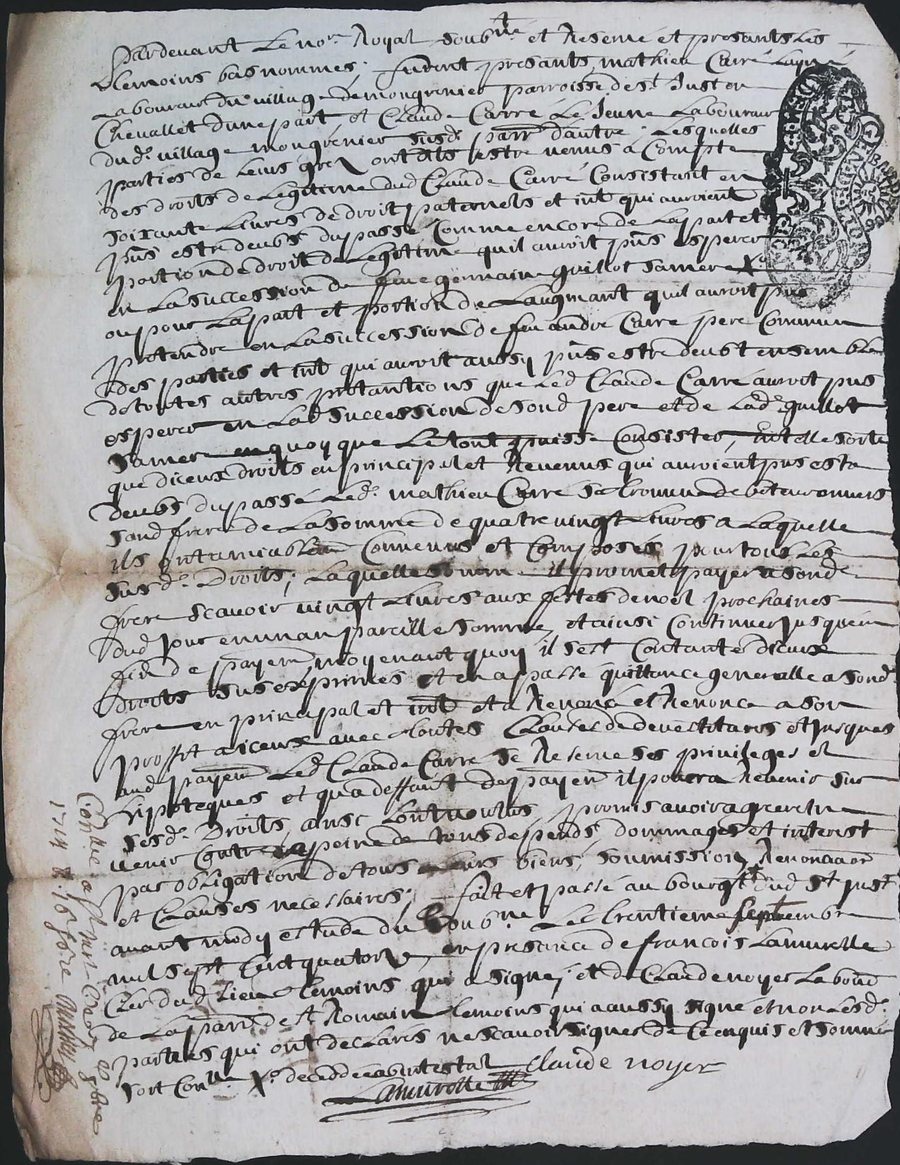 Pardevant Le nore Royal soubné et Reservé et presants Les
temoins bas nommes; furent presants mathieu Carré Layné
Laboureur du village de mongrenier parroisse de st Just en
Chevallet dune part et Claude Carré Le Jeune Laboureur
dud. village mongrenier susd. parr dautre; Lesquelles
parties de leurs gré ont dis estre venus a Compte
des droits de Legitime dud Claude Carré Consistant en
soixante Livres de droit paternels et int qui auroient
pus estre deubs du passé Comme encore de La part et
portion de droit de Legitime quil auroit pus esperer
en La succession de feue germaine guillot sa mere X
ou pour La part et portion de Laugmant quil auroit pus
pretendre en La succession de feu andré Carré pere Commun
des parties et int qui auroit aussy pus estre deus et ensemble
de toutes autres pretantions que Led Claude Carré auroit pus
esperer en Lad succession de sond pere et de Lad. guillot
sa mere en quoy que Le tout puisse Consister, en telle sorte
que diceux droits en principal et Revenus qui auroient pus estre
deubs du passé Led. mathieu Carré se trouve debiteur envers
sond frere de La somme de quatre vingt Livres a Laquelle
ils ont amiablem Convenus et Composés pour tous Les
susd. Droits; Laquelle somme il promet payer a sond.
frere scavoir vingt Livres aux festes de noel prochaines
dud jour en un an pareille somme, et ainsi Continuer jusqu'en
fin de payem, moyenant quoy il s'est Contanté diceux
Droits sus exprimés et en a passé quittance generalle a sond.
frere en principal et int et a Renoncé et Renonce a son
proffit a iceux avec toutes Clauses de devestitures et jusques
aud payem Led. Claude Carré se Reserve ses privileges et
Ipoteques et qua deffaut de payem il poura Revenir sur
sesd. Droits, ainsy Lont voulus promis avoir agreer
venir Contre a peine de tous depends dommages et interest
par obligation de tous Leurs biens, soumissions, Renonciaon
et Clauses necessaires; fait et passé au bourg dud st just
avant midy estude du soubné Le trentieme septembre
mil sept Cent quatorze, en presance de francois Lamurette
Clerc dud Lieu temoins qui a signé; et de Claude noyer Labour
de La parr de st Romain temoins qui a aussy signé et non Lesd.
parties qui ont declarés ne scavoir signer de Ce enquis et sommés
X decedée abintestat
Claude noyer
Lamurette
Conllé a st just
1714
GENERALITÉ